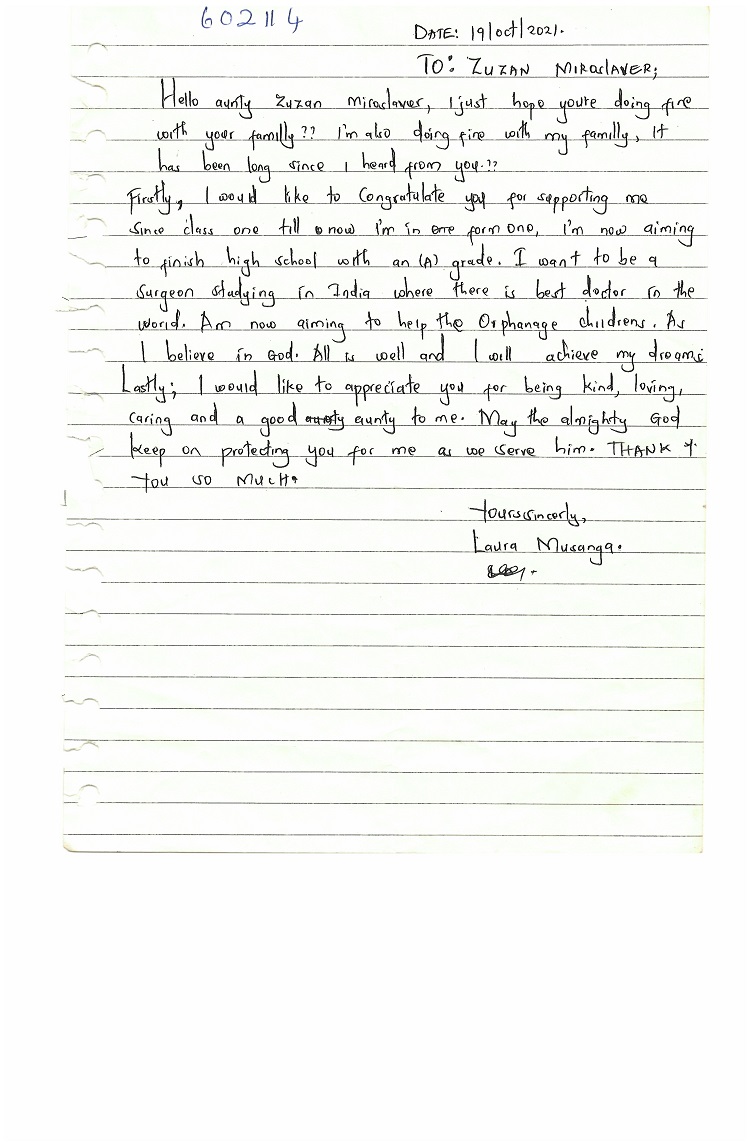 602114
DATE: 19/oct/2021.
TO: ZUZAN MIRACLAVER;
Hello aunty Zuzan Miraclaver, I just hope youre doing fire
with your familly?? I'm also doing fine with my familly, It
has been long since I heard from you.??
Firstly, I would like to Congratulate you for supporting me
since class one till now I'm in form one, I'm now aiming
to finish high school with an (A) grade. I want to be a
surgeon studying in India where there is best doctor in the
world. Am now aiming to help the Orphanage childrens. As
I believe in God. All is well and I will achieve my dreams
Lastly; I would like to appreciate you for being kind, loving,
caring and a good aunty to me. May the almighty God
keep on protecting you for me as we serve him. THANK
YOU SO MUCH.
Yourssincerly,
Laura Musanga.